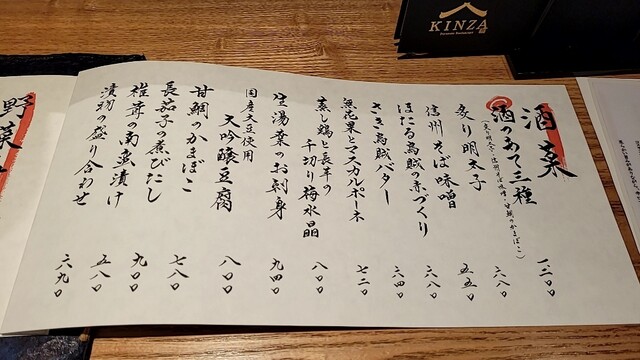 KINZA
酒菜
酒のあて三種
(炙り明太子・信州そば味噌・甘鯛のかまぼこ)
一、三〇〇
炙り明太子
六八〇
信州そば味噌
五五〇
ほたる烏賊の赤づくり
六八〇
さき烏賊バター
六四〇
無花果とマスカルポーネ
七二〇
蒸し鶏と長芋の
千切り梅水晶
八〇〇
生湯葉のお刺身
九四〇
国産大豆使用
大吟醸豆腐
八〇〇
甘鯛のかまぼこ
七八〇
長茄子の煮びたし
九〇〇
椎茸の南蛮漬け
五八〇
漬物の盛り合わせ
六九〇
野菜